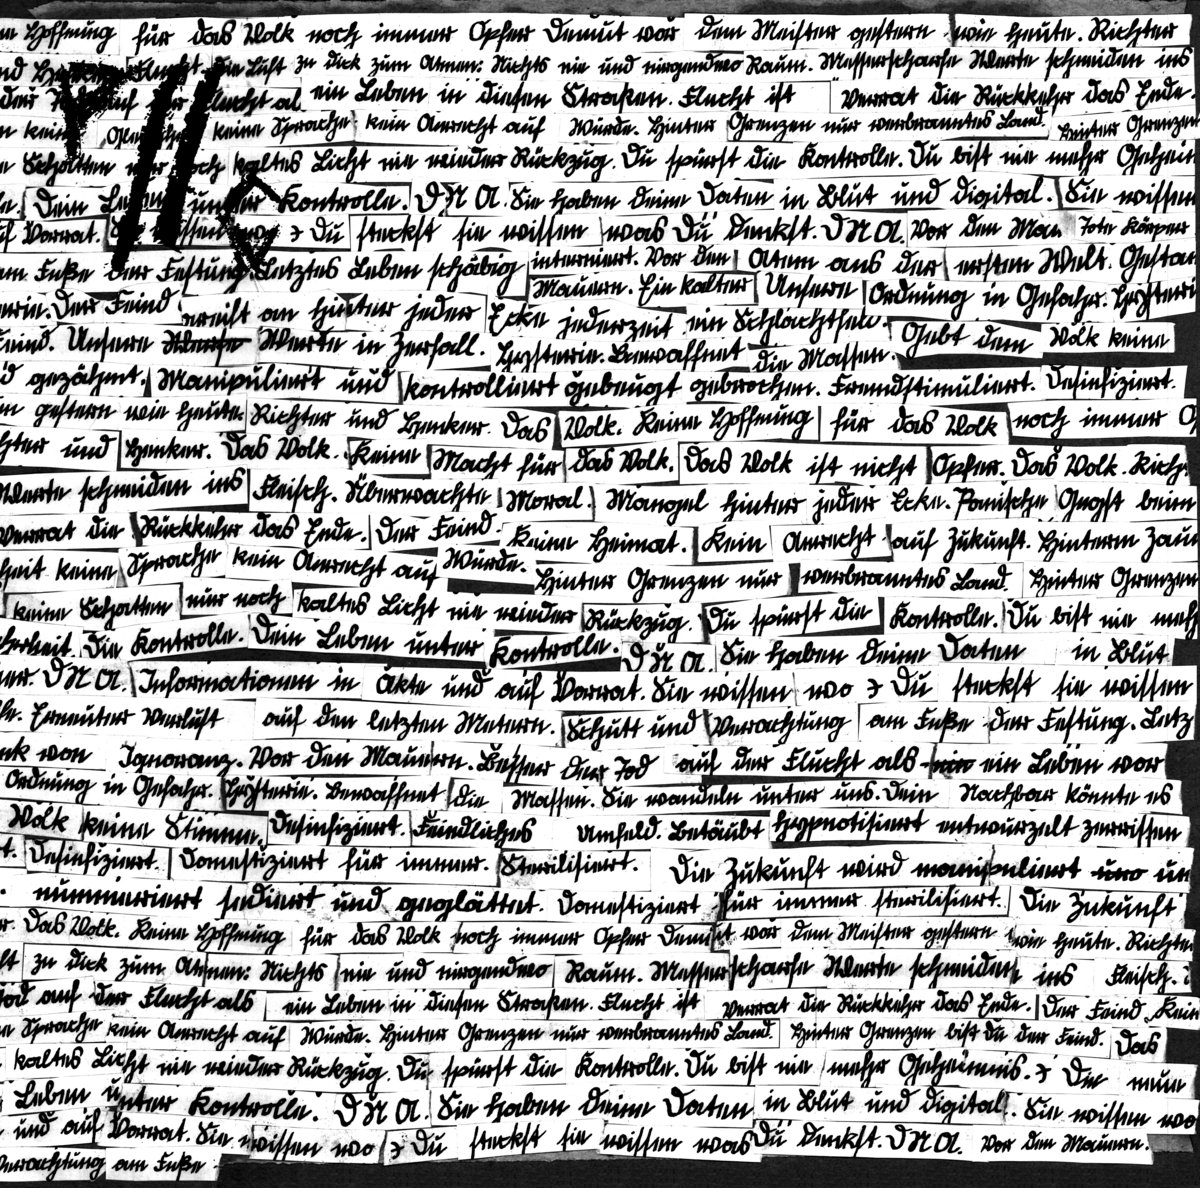 Hoffnung für das Volk noch immer Opfer Demut vor dem Meister gestern wie heute. Richter
die Luft zu dick zum Atmen: Nichts nie und nirgendwo Raum. Messerscharfe Werte schneiden ins
der auf der Flucht al ein Leben in diesen Straßen. Flucht ist Verrat die Rückkehr das Ende.
keine Sprache kein Anrecht auf Würde. Hinter Grenzen nur verbranntes Land. Hinter Grenzen
Schatten nur noch kaltes Licht nie wieder Rückzug. Du spürst die Kontrolle. Du bist nie mehr Geheim
Dein Leben unter Kontrolle. DNA. Sie haben deine Daten in Blut und digital. Sie wissen
auf Vorrat. Sie wissen wo Du steckst sie wissen was Du Denkst. DNA. Vor den Mau Tote Körper
am Fuße der Festung. Letztes Leben schäbig interniert. Vor den Atem aus der ersten Welt. Gestan
Mauern. Ein kalter Unsere Ordnung in Gefahr. Hysteri
erie. Der Feind ereift an hinter jeder Ecke jederzeit ein Schlachtfeld.
Feind. Unsere Werte Werte in Zerfall. Hysterie. Bewaffnet die Massen. Gebt dem Volk keine
gezähmt. Manipuliert und kontrolliert gebeugt gebrochen. Fremdstimuliert. Desinfiziert.
gestern wie heute. Richter und Henker. Das Volk. Keine Hoffnung für das Volk noch immer O
hter und Henker. Das Volk. Keine Macht für das Volk. Das Volk ist nicht Opfer. Das Volk. Rich
Werte schneiden ins Fleisch. Überwachte Moral. Mangel hinter jeder Ecke. Panische Angst beim
Verrat die Rückkehr das Ende. Der Feind. Keine Heimat. Kein Anrecht auf Zukunft. Hinterm Zaun
heit keine Sprache kein Anrecht auf Würde. Hinter Grenzen nur verbranntes Land. Hinter Grenzen
keine Schatten nur noch kaltes Licht nie wieder Rückzug. Du spürst die Kontrolle. Du bist nie meh
cherheit. Die Kontrolle. Dein Leben unter Kontrolle. DNA. Sie haben deine Daten in Blut
DNA. Informationen in Akte und auf Vorrat. Sie wissen wo Du steckst sie wissen
Erneuter Verlust auf den letzten Metern. Schutt und Verachtung am Fuße der Festung. Letz
nk von Ignoranz. Vor den Mauern. Besser der Tod auf der Flucht als ein Leben vor
Ordnung in Gefahr. Hysterie. Bewaffnet die Massen. Sie wandeln unter uns. Dein Nachbar könnte es
Volk keine Stimme. Desinfiziert. Feindliches Umfeld. Betäubt hypnotisiert entwurzelt zerrissen
t. Desinfiziert. Domestiziert für immer. Sterilisiert. Die Zukunft wird manipuliert und un
nummeriert sediert und geglättet. Domestiziert für immer sterilisiert. Die Zukunft
r. Das Volk. Keine Hoffnung für das Volk noch immer Opfer Demut vor dem Meister gestern wie heute. Richter
ft zu dick zum Atmen: Nichts nie und nirgendwo Raum. Messerscharfe Werte schneiden ins Fleisch.
Tod auf der Flucht als ein Leben in diesen Straßen. Flucht ist Verrat die Rückkehr das Ende. Der Feind. Kein
Sprache kein Anrecht auf Würde. Hinter Grenzen nur verbranntes Land. Hinter Grenzen bist du der Feind. Das
kaltes Licht nie wieder Rückzug. Du spürst die Kontrolle. Du bist nie mehr Geheimnis. Die neue
Leben unter Kontrolle. DNA. Sie haben deine Daten in Blut und digital. Sie wissen wo
und auf Vorrat. Sie wissen wo Du steckst sie wissen was Du Denkst. DNA. Vor den Mauern.
Verachtung am Fuße